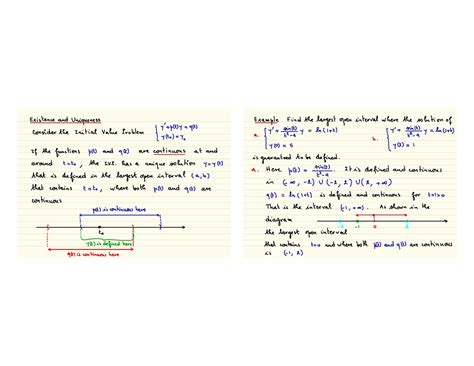 Existence and Uniqueness
Consider the Initial Value Problem { y' + p(t) y = g(t)
y(t₀) = y₀
If the functions p(t) and g(t) are continuous at and
around t = t₀, the I.V.P. has a unique solution y = y(t)
that is defined in the largest open interval (a, b)
that contains t = t₀, where both p(t) and g(t) are
continuous
p(t) is continuous here
t₀
y(t) is defined here
g(t) is continuous here
Example Find the largest open interval where the solution of
a. { y' + sin(t)/(t²-4) y = ln(1+t)
y(0) = 5
b. { y' + sin(t)/(t²-4) y = ln(1+t)
y(3) = 1
is guaranteed to be defined.
a. Here p(t) = sin(t)/(t²-4). It is defined and continuous
in (-∞, -2) ∪ (-2, 2) ∪ (2, +∞)
g(t) = ln(1+t) is defined and continuous for t+1>0
That is the interval (-1, +∞). As shown in the
diagram
-2 -1 0 2
the largest open interval
that contains t=0 and where both p(t) and g(t) are continuous
is (-1, 2)